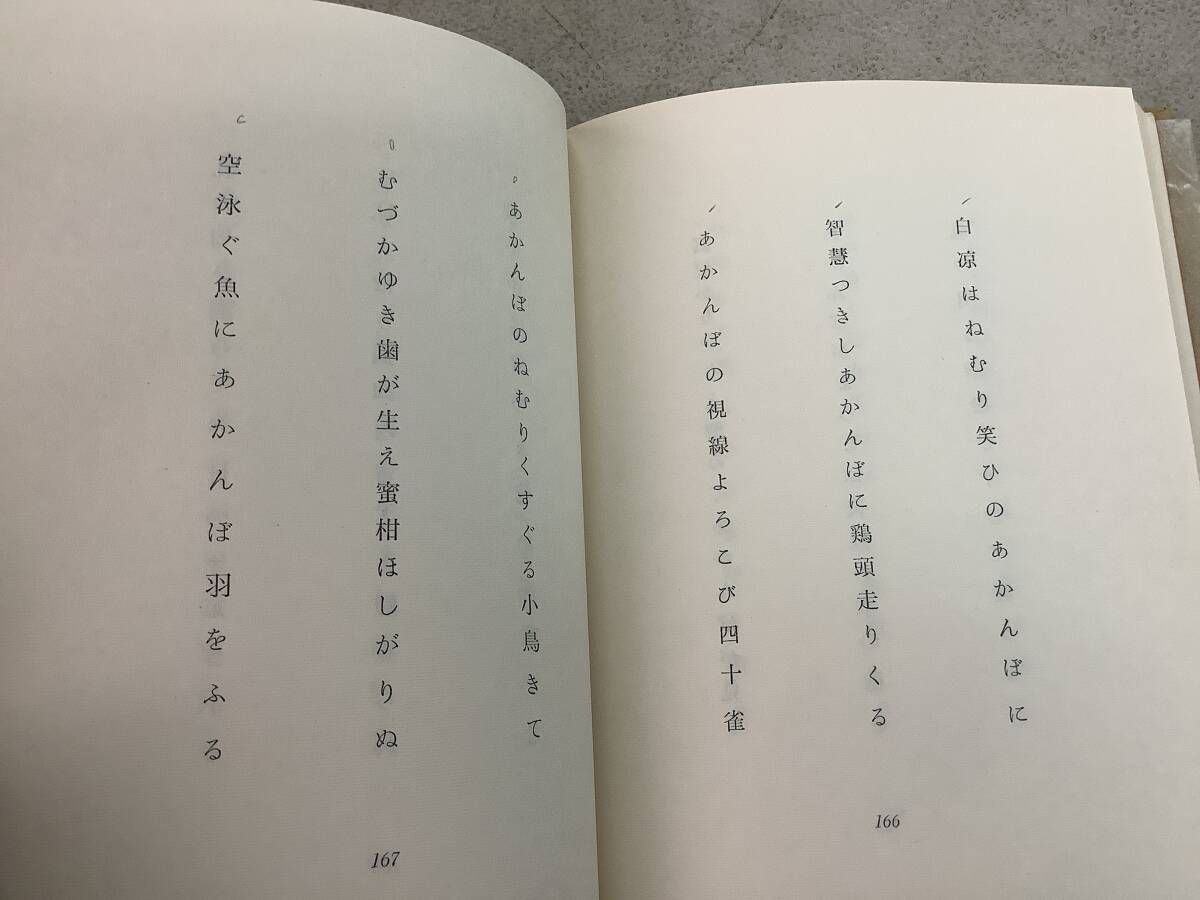 白凉はねむり笑ひのあかんぼに
智慧つきしあかんぼに鶏頭走りくる
あかんぼの視線よろこび四十雀
166
あかんぼのねむりくすぐる小鳥きて
むづかゆき歯が生え蜜柑ほしがりぬ
空泳ぐ魚にあかんぼ羽をふる
167